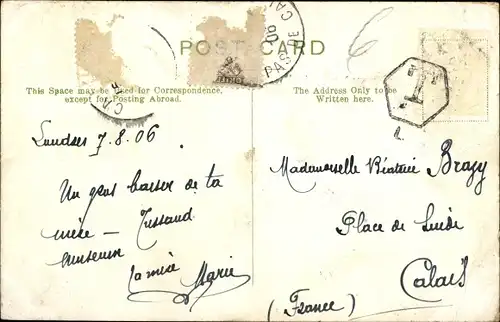 POST CARD
This Space may be used for Correspondence,
except for Posting Abroad.
The Address Only to be
Written here.
PAS DE CA
CA
T
Londres 7.8.06
Un gros baiser de ta
mère — Tussaud
Ta mère Marie
Mademoiselle Béatrice Brazy
Place de Suède
Calais
(France)